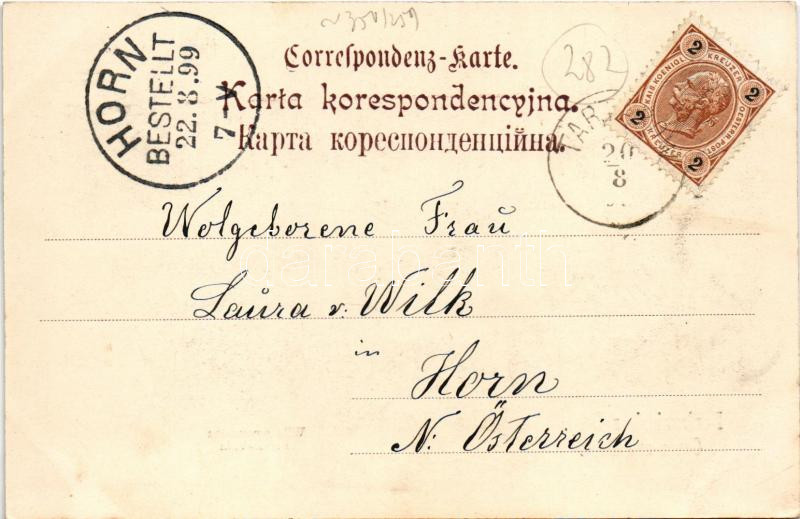 HORN
BESTELLT
22.8.99
7-V
Correspondenz-Karte.
Karta korespondencyjna.
Карта кореспонденційна.
282
20
8
2
2
2
2
KAIS. KOENIGL.
OESTERR. POST
KREUZER
KREUZER
Wolgeborene Fraŭ
Laŭra v. Wilk
in
Horn
N. Österreich